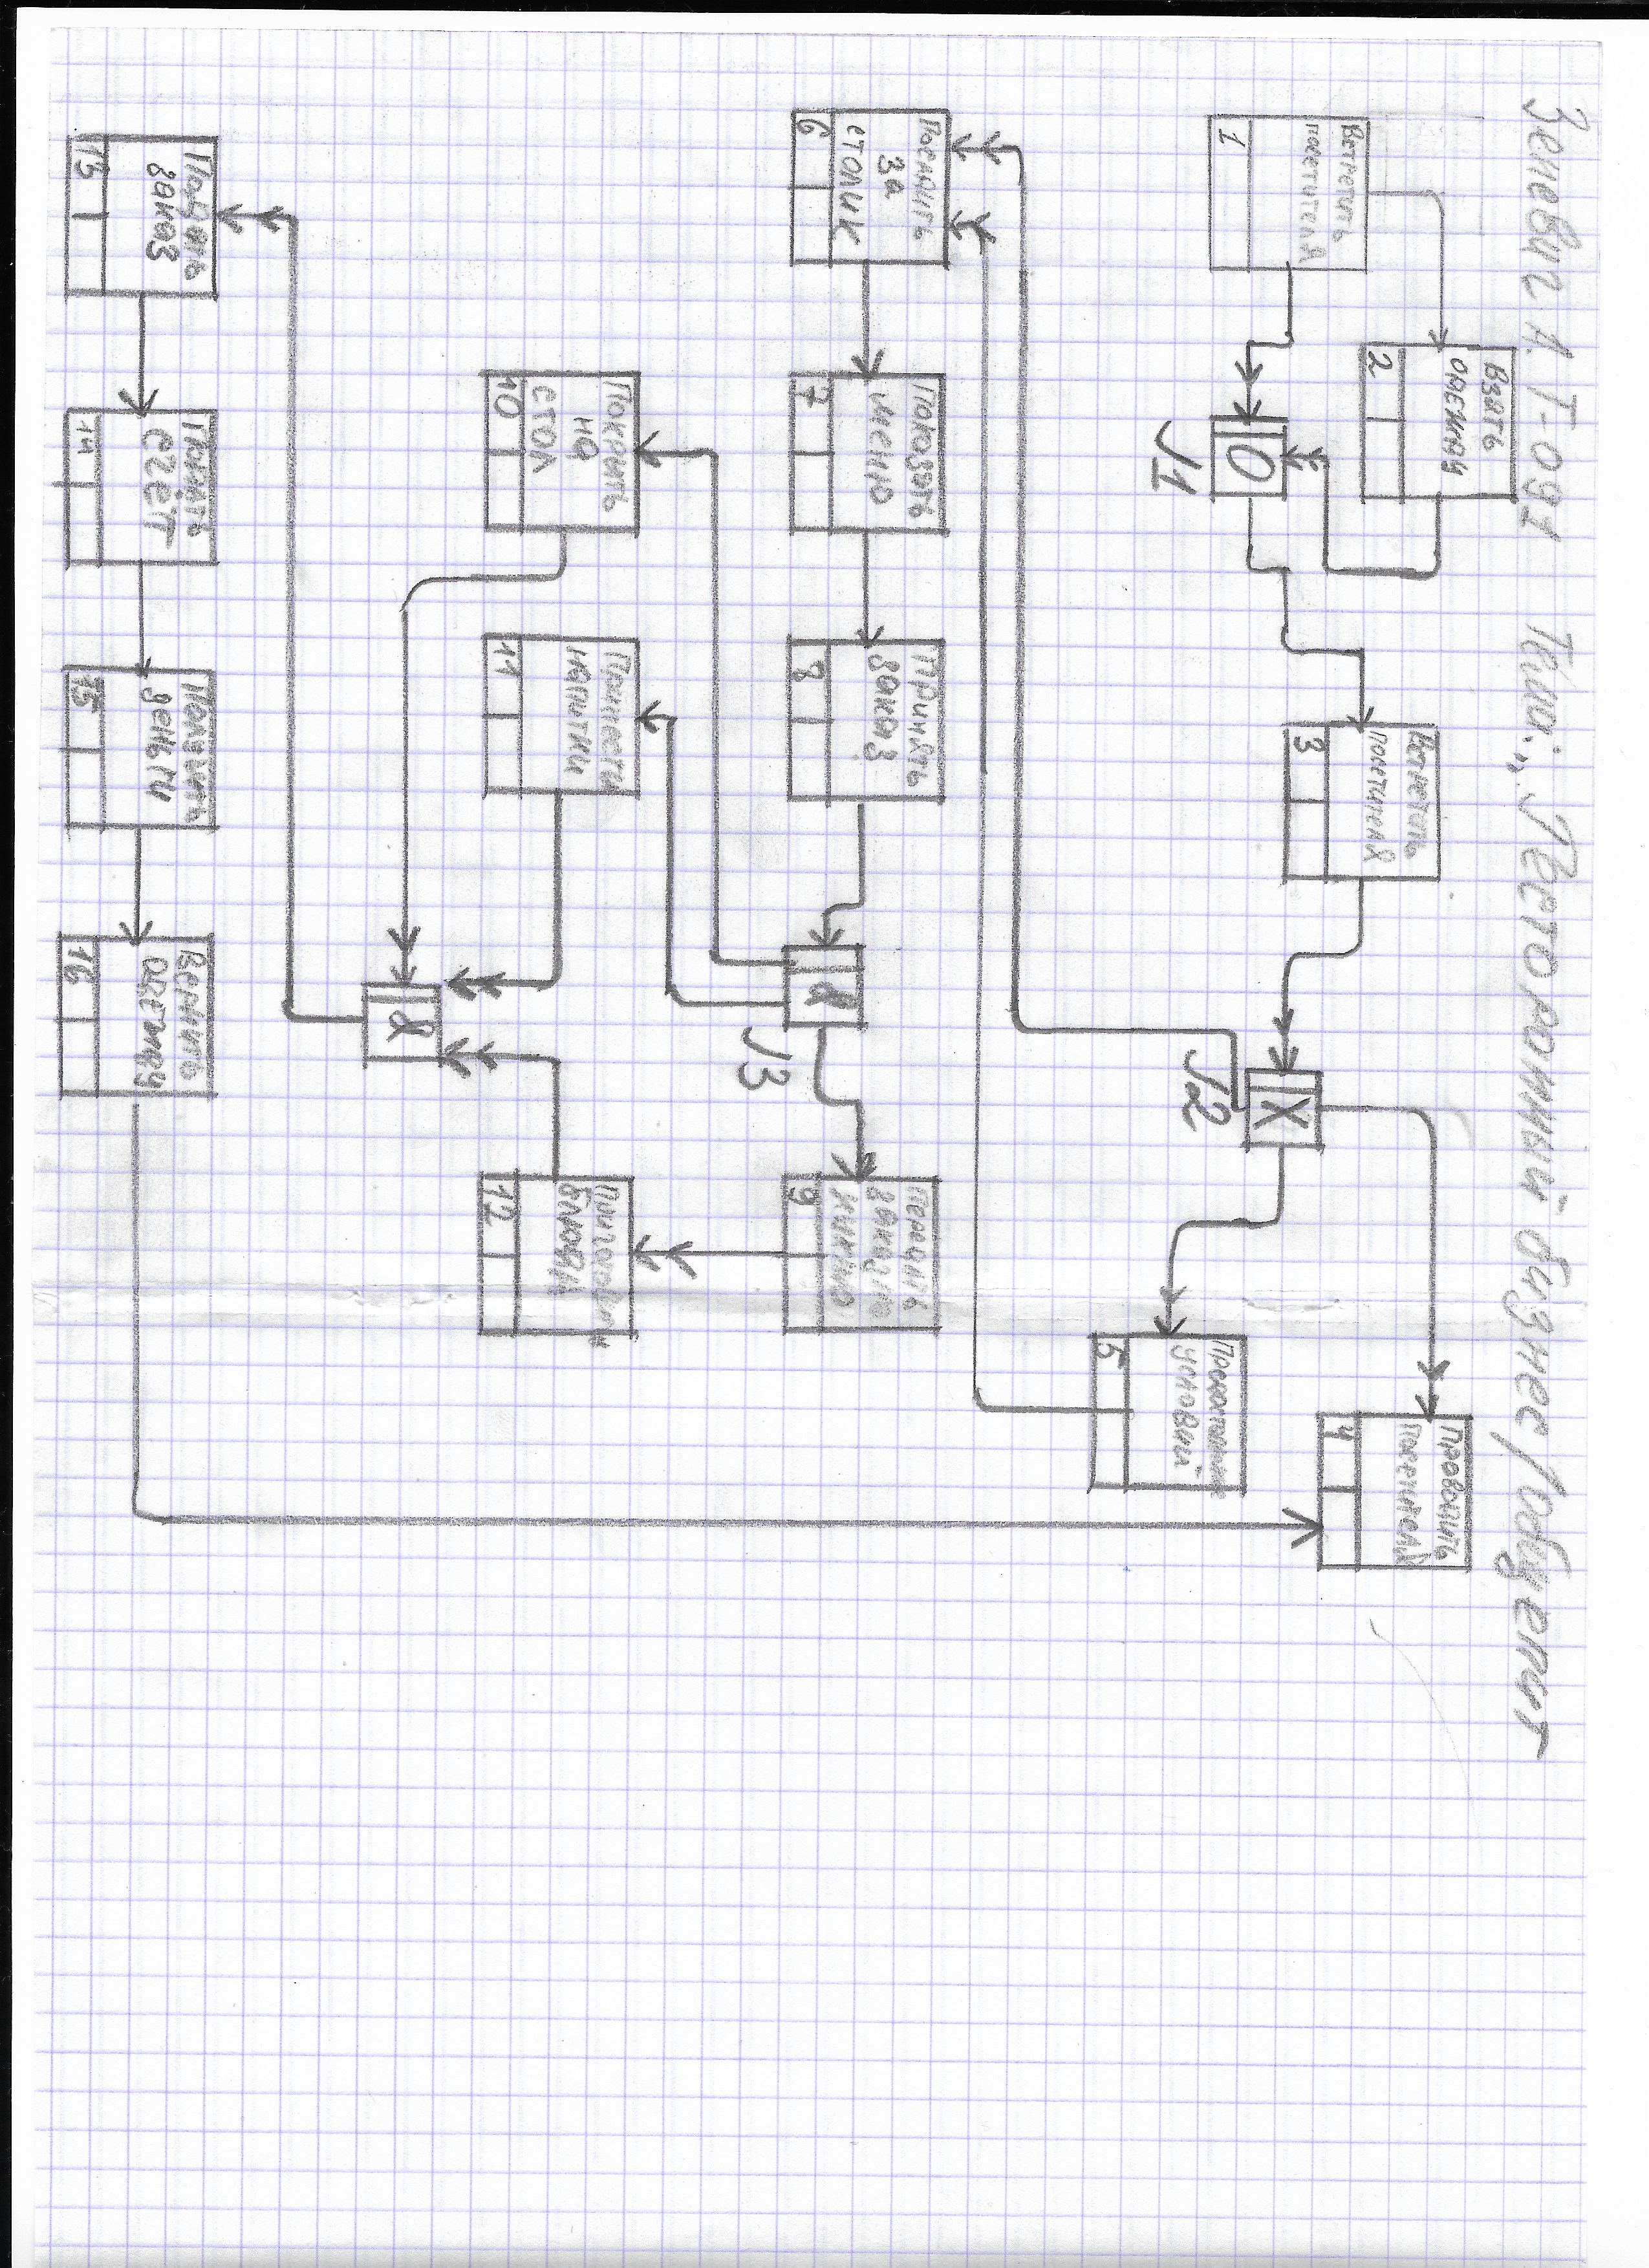 Зеневич А. Т-091 Тема: „Ресторанный бизнес/общепит
Взять
одежду
2
Встретить
посетителя
1
O
J1
Встретить
посетителя
3
X
J2
Проводить
посетителя
4
условий
5
Посадить
за
столик
6
Показать
меню
7
Принять
заказ
8
&
J3
Передать
заказ на
кухню
9
Покрыть
на
стол
10
Принести
напитки
11
Приготовить
блюда
12
&
Подать
заказ
13
Подать
счёт
14
Получить
деньги
15
Вернуть
одежду
16